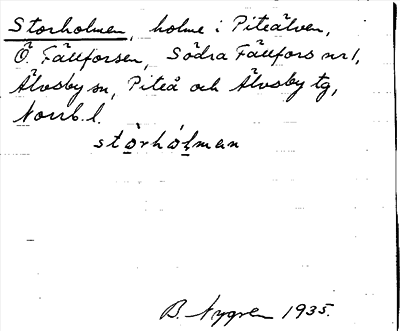 Storholmen, holme i Piteälven,
Ö. Fällforsen, Södra Fällfors nr 1,
Älvsby sn, Piteå och Älvsby tg,
Norrb. l.
stòrhólman
B. Nygren 1935.